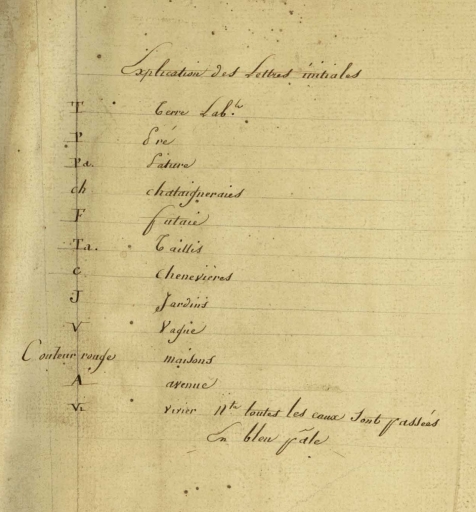 Explication des Lettres initiales
T Terre Lab.le
P Pré
Pa. Pature
ch chataigneraies
F futaie
Ta. Taillis
c chenevières
J Jardins
V Vague
Couleur rouge maisons
A avenue
Vi vivier Nta toutes les eaux sont passées
En bleu pâle